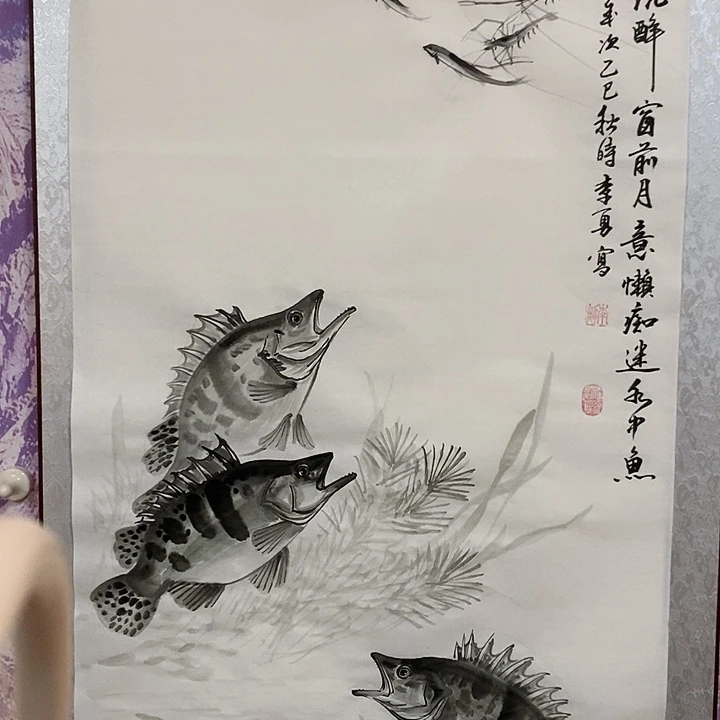 醉窗前月意懒痴迷水中鱼
岁次乙巳秋时李勇写